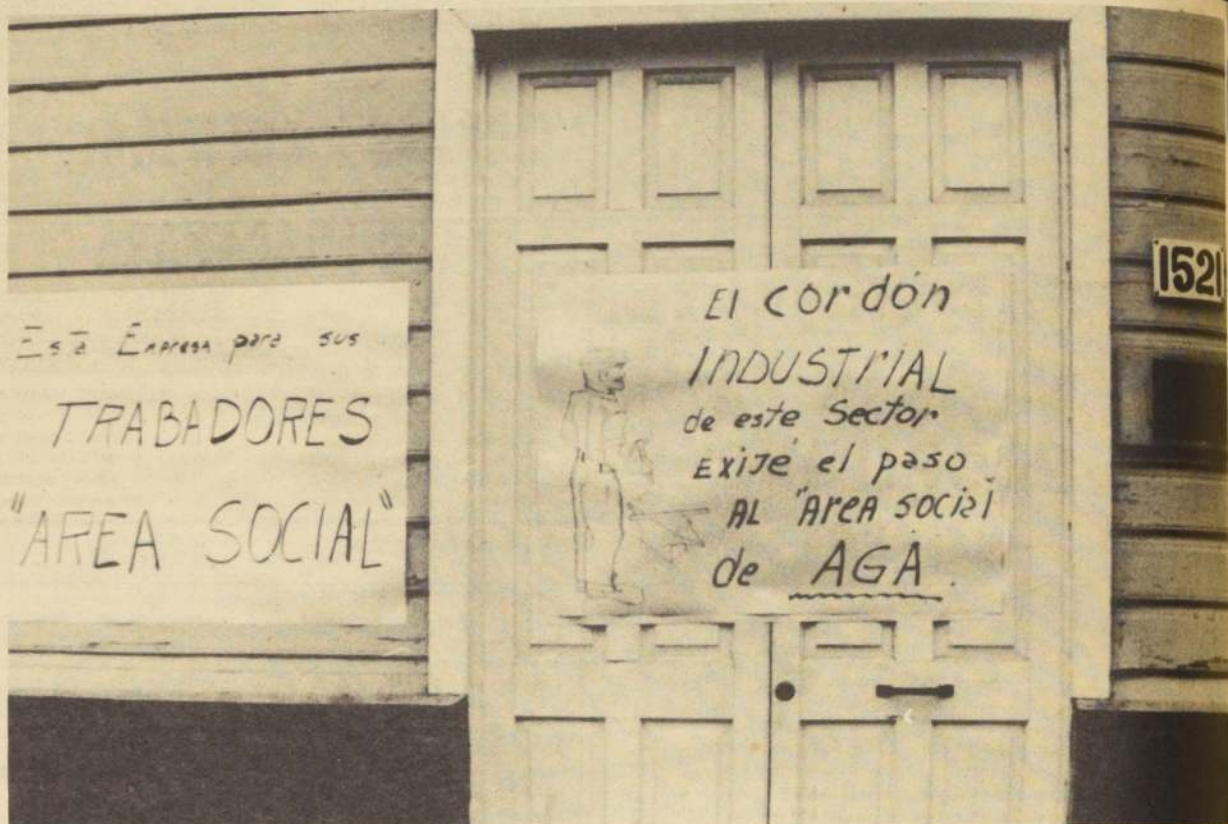 Esta Empresa para sus
TRABADORES
"AREA SOCIAL"
El cordón
INDUSTRIAL
de este Sector
EXIJE el paso
AL "AREA SOCIAL
de AGA.
1521